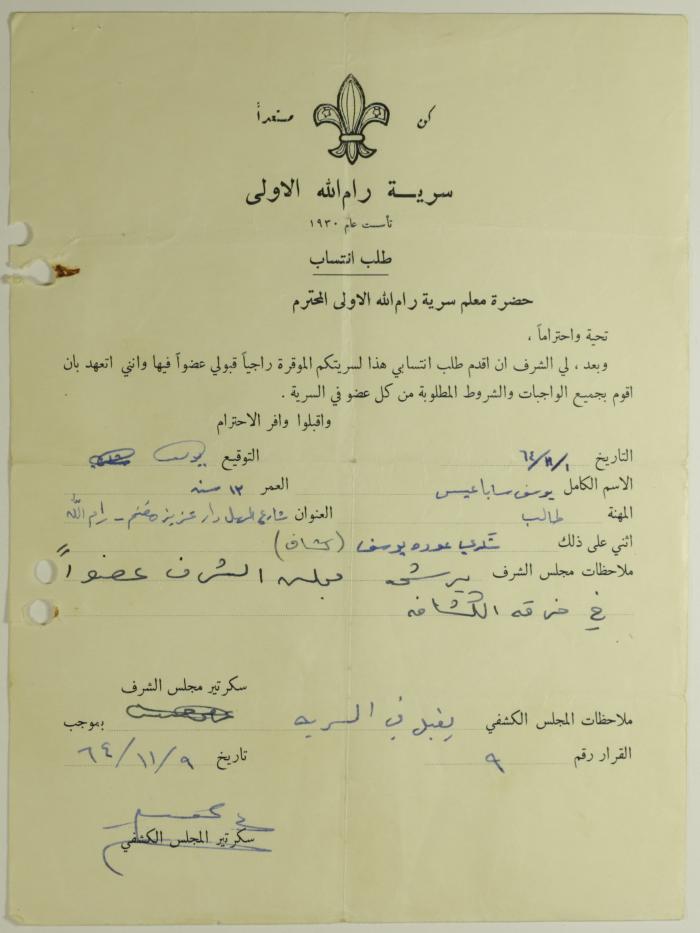 كن مستعداً
سرية رام الله الاولى
تأسست عام ١٩٣٠
طلب انتساب
حضرة معلم سرية رام الله الاولى المحترم
تحية واحتراماً ،
وبعد ، لي الشرف ان اقدم طلب انتسابي هذا لسريتكم الموقرة راجياً قبولي عضواً فيها وانني اتعهد بان
اقوم بجميع الواجبات والشروط المطلوبة من كل عضو في السرية .
واقبلوا وافر الاحترام
التاريخ ٦٤/١١/١ التوقيع يوسف
الاسم الكامل يوسف سابا عيسى العمر ١٣ سنه
المهنة طالب العنوان شارع دار عزيز - رام الله
اثني على ذلك عوده يوسف (كشاف)
ملاحظات مجلس الشرف يرشحه مجلس الشرف عضواً
في فرقه الكشافه
سكرتير مجلس الشرف
ملاحظات المجلس الكشفي يقبل في السريه بموجب
القرار رقم ٩ تاريخ ٦٤/١١/٩
سكرتير المجلس الكشفي